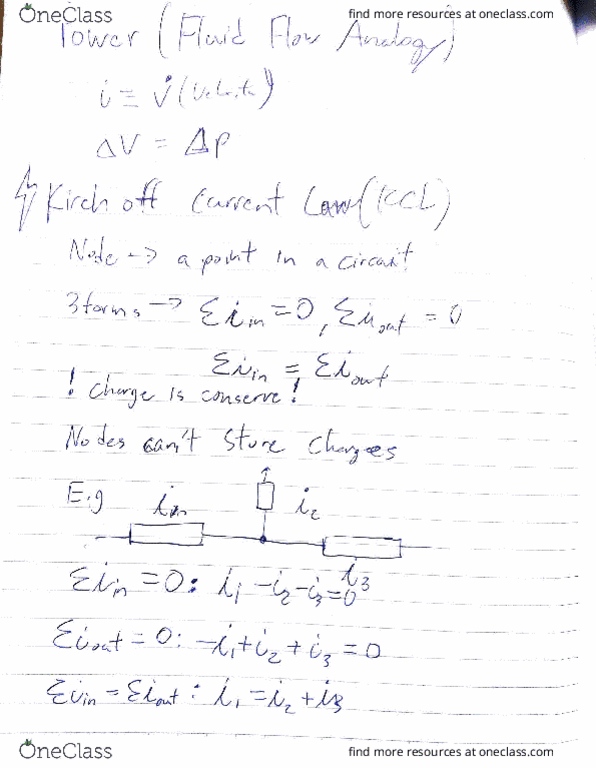 OneClass find more resources at oneclass.com
Power (Fluid Flow Analogy)
i ≡ V̇ (Velocity)
ΔV = ΔP
Kirch off Current Law (KCL)
Node → a point in a circuit
3 forms → Σi_in = 0, Σi_out = 0
Σi_in = Σi_out
! Charge is conserve!
Nodes can't Store Charges
E.g i_in i_2
i_3
Σi_in = 0: i_1 - i_2 - i_3 = 0
Σi_out = 0: -i_1 + i_2 + i_3 = 0
Σi_in = Σi_out : i_1 = i_2 + i_3
OneClass find more resources at oneclass.com